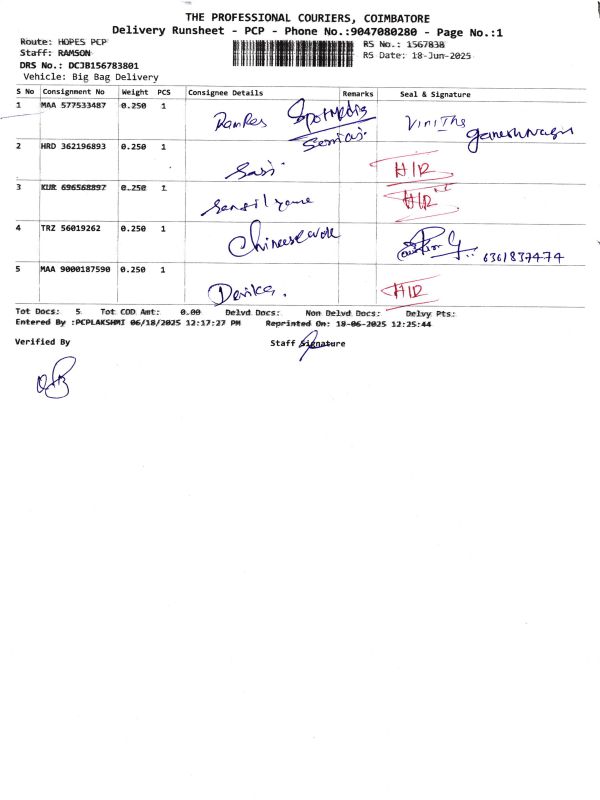 THE PROFESSIONAL COURIERS, COIMBATORE
Delivery Runsheet - PCP - Phone No.:9047080280 - Page No.:1
Route: HOPES PCP RS No.: 1567838
Staff: RAMSON RS Date: 18-Jun-2025
DRS No.: DCJB156783801
Vehicle: Big Bag Delivery
S No Consignment No Weight PCS Consignee Details Remarks Seal & Signature
1 MAA 577533487 0.250 1 Ramkes Spotmedia Vinitha
Services. Ganesh Nagar
2 HRD 362196893 0.250 1 Sasi. H/R
3 KUR 696568897 0.250 1 H/R
4 TRZ 56019262 0.250 1 Chinese wok 6361837474
5 MAA 9000187590 0.250 1 Devika. H/R
Tot Docs: 5 Tot COD Amt: 0.00 Delvd Docs: Non Delvd Docs: Delvy Pts:
Entered By :PCPLAKSHMI 06/18/2025 12:17:27 PM Reprinted On: 18-06-2025 12:25:44
Verified By Staff Signature